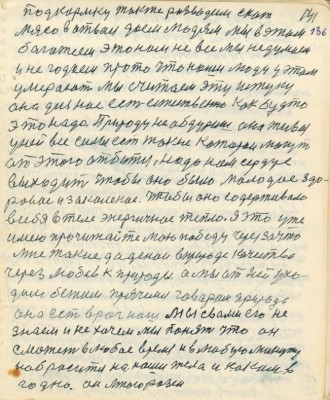 подкормку также разводим скот 141
мясо в отвал даем людям мы в этом 136
богатеем этого нам не все мы недумаем
и не гадаем прото что наши люди у этом
умерают мы считаем эту штуку
она для нас ест естественно как будто
это надо. Природу не обдуриш она живая
у ней все силы ест такие которая могут
от этого отбити, надо нам сердце
выходит чтобы оно было молодое здо-
ровое и закаленое. Чтобы оно содерживало
в себя в теле энергичное тепло. Я это уже
имею прочитайте мою победу через за что
мне такие даденаи в природе качества
через любов к природе. а мы от ней ухо-
дим бежим причини говорим природа
она ест враг наш мы с вами его не
знаем и не хочем мы понят что он
сможет в любое время и в любую минуту
набросится на наши тела и каким
годно. он много разен